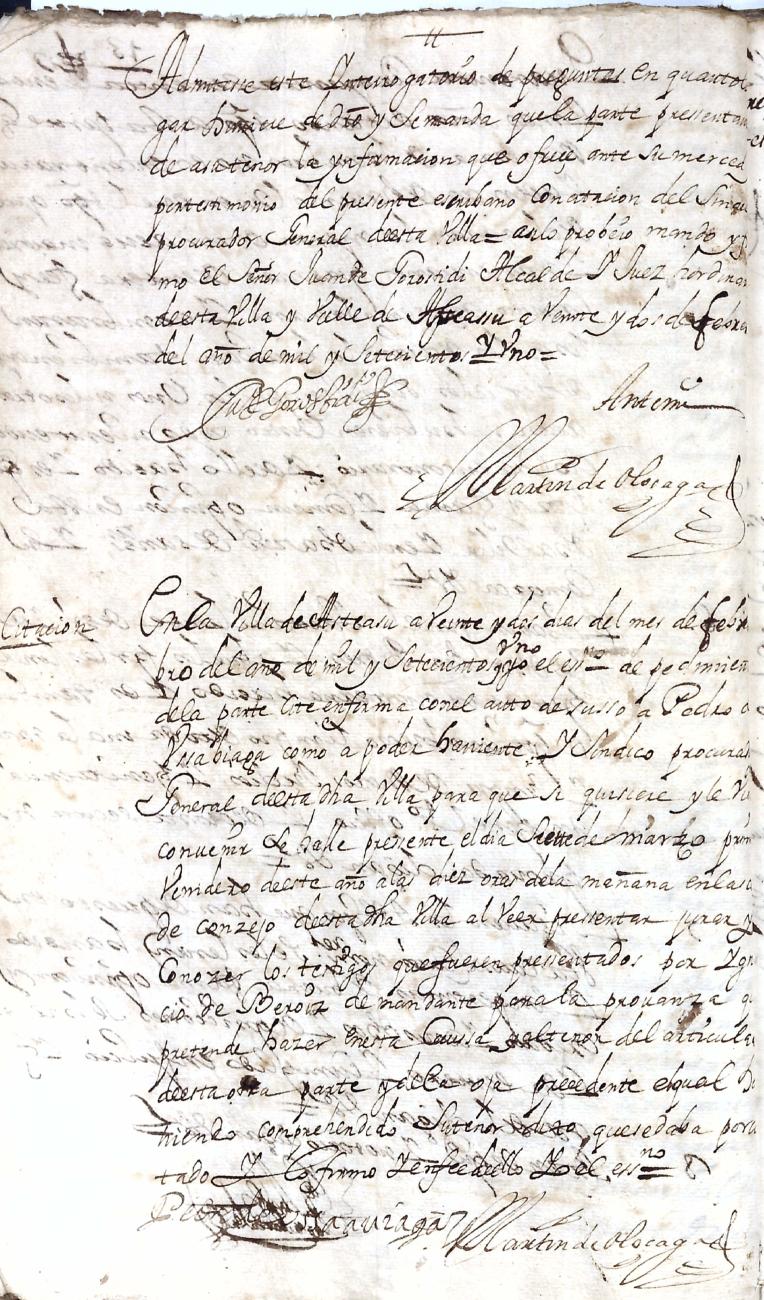 Admitese este Ynterrogatorio de preguntas en quanto l
gar hubiere de dro y se manda que la parte pressentan
de a su tenor la ynformacion que ofreçe ante su merced
por testimonio del presente escribano con citacion del Sindi
procurador General deesta Villa = assi lo probeio mando y f
mo el Señor Juan de Gorostidi Alcalde Y Juez hordinar
deesta Villa y Valle de Asteassu a Veinte y dos de febre
del año de mil y Setecientos Y Uno =
Ju de Gorostidi
Ante mi
Martin de Oloçaga
Citacion
En la Villa de Asteasu a Veinte y dos dias del mes de febre
bro del año de mil y Setecientos y uno yo el essno de pedimien
dela parte cite en forma con el auto de susso a Pedro d
Ussabiaga como a poder haviente Y Sindico procura
General deesta dha Villa para que si quisiere y le Vi
convenir se halle pressente el dia Siette de março prim
Venidero deeste año a las diez oras dela mañana en la sa
de conzejo deesta dha Villa al Veer pressentar jurar y
Conozer los testigos que fueren pressentados por Ygn
cio de Beroiz demandante para la provanza q
pretende hazer enesta Caussa y altenor del articula
deesta otra parte y de la oja precedente el qual ha
viendo comprehendido su tenor dixo que se daba por ci
tado Y lo firmo Y en fee dello Yo el essno
Pedro de Ussauiaga
Martin de Oloçaga